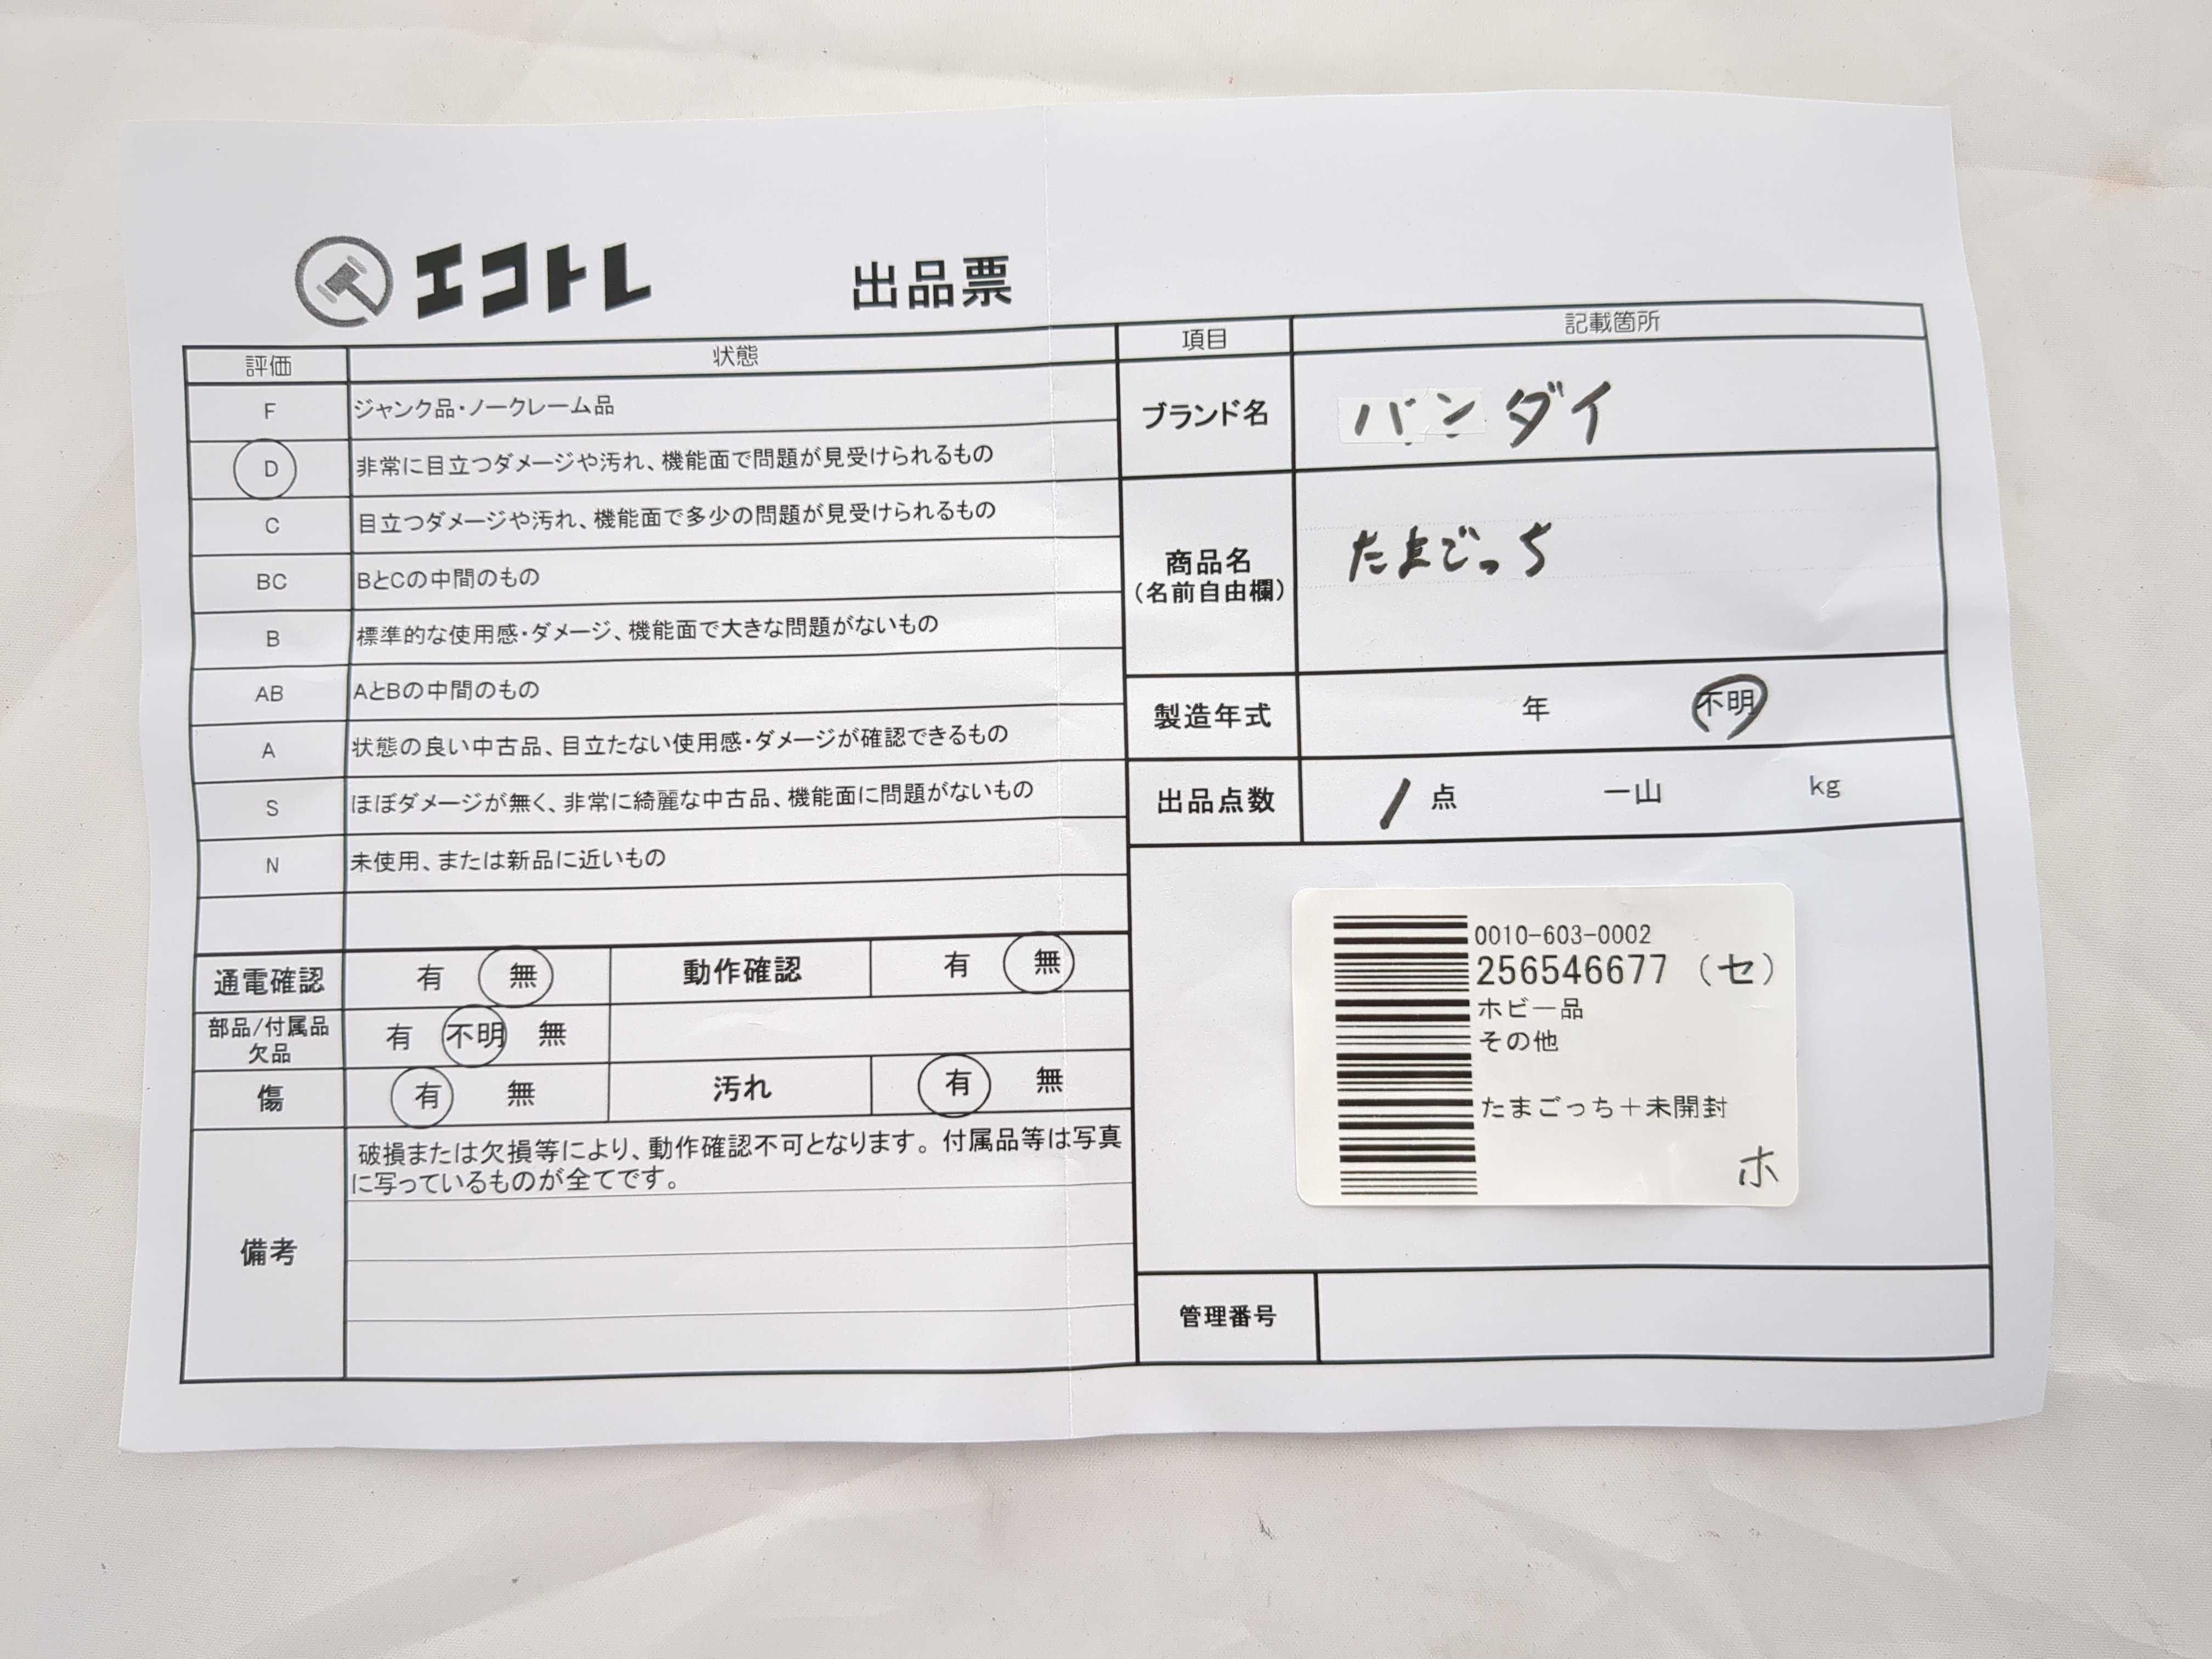 エコトレ 出品票
評価 状態
F ジャンク品・ノークレーム品
D 非常に目立つダメージや汚れ、機能面で問題が見受けられるもの
C 目立つダメージや汚れ、機能面で多少の問題が見受けられるもの
BC BとCの中間のもの
B 標準的な使用感・ダメージ、機能面で大きな問題がないもの
AB AとBの中間のもの
A 状態の良い中古品、目立たない使用感・ダメージが確認できるもの
S ほぼダメージが無く、非常に綺麗な中古品、機能面に問題がないもの
N 未使用、または新品に近いもの
通電確認 有 無 動作確認 有 無
部品/付属品
欠品 有 不明 無
傷 有 無 汚れ 有 無
備考
破損または欠損等により、動作確認不可となります。付属品等は写真
に写っているものが全てです。
項目 記載箇所
ブランド名 バンダイ
商品名
(名前自由欄)
たまごっち
製造年式 年 不明
出品点数 1 点 一山 kg
0010-603-0002
256546677 (セ)
ホビー品
その他
たまごっち+未開封
ホ
管理番号